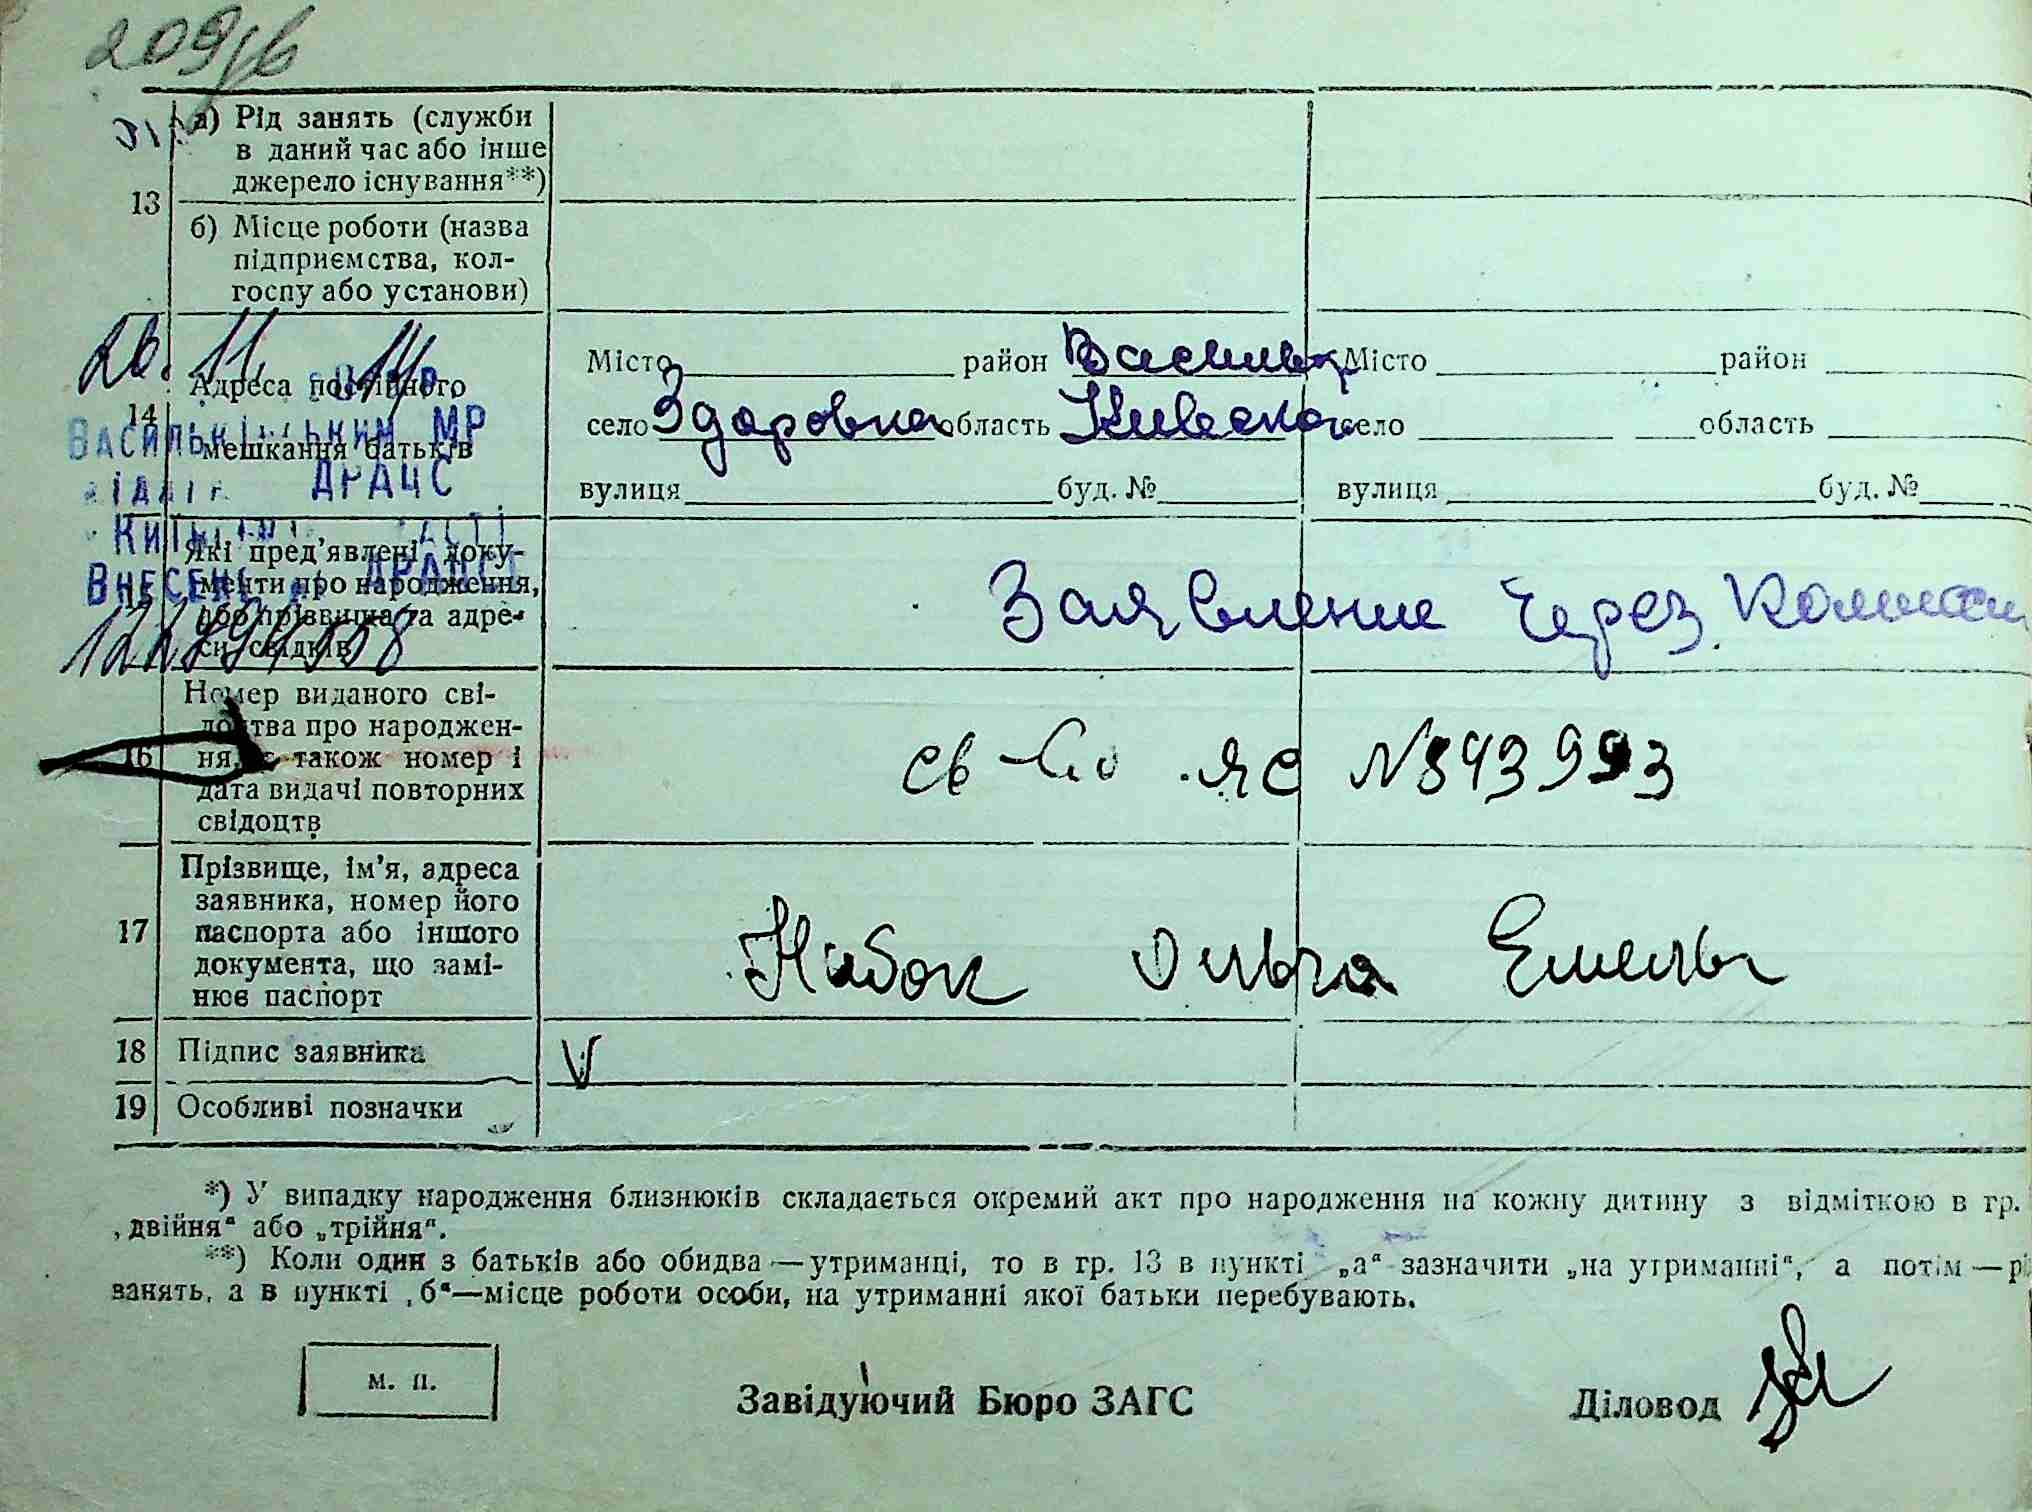 209/в
а) Рід занять (служби
в даний час або інше
джерело існування**)
13
б) Місце роботи (назва
підприємства, кол-
госпу або установи)
26. 11.
Місто район Васильк Місто район
Адреса постійного
14
село Здоровка область Киевская село область
ВАСИЛЬКІВСЬКИМ МР
мешкання батьків
ДРАЦС
вулиця буд. № вулиця буд. №
Які пред'явлені доку-
ВНЕСЕНО ДРАЦС
15 менти про народження,
або прізвища та адре-
си свідків
Заявление через комисси
Номер виданого сві-
доцтва про народжен-
16 ня, а також номер і
дата видачі повторних
свідоцтв
св-во ЯС №843993
Прізвище, ім'я, адреса
заявника, номер його
17 паспорта або іншого
документа, що замі-
нює паспорт
Набок Ольга Емель
18 Підпис заявника V
19 Особливі позначки
*) У випадку народження близнюків складається окремий акт про народження на кожну дитину з відміткою в гр.
„двійня“ або „трійня“.
**) Коли один з батьків або обидва—утриманці, то в гр. 13 в пункті „а“ зазначити „на утриманні“, а потім—рі
занять, а в пункті „б“—місце роботи особи, на утриманні якої батьки перебувають.
м. п.
Завідуючий Бюро ЗАГС
Діловод